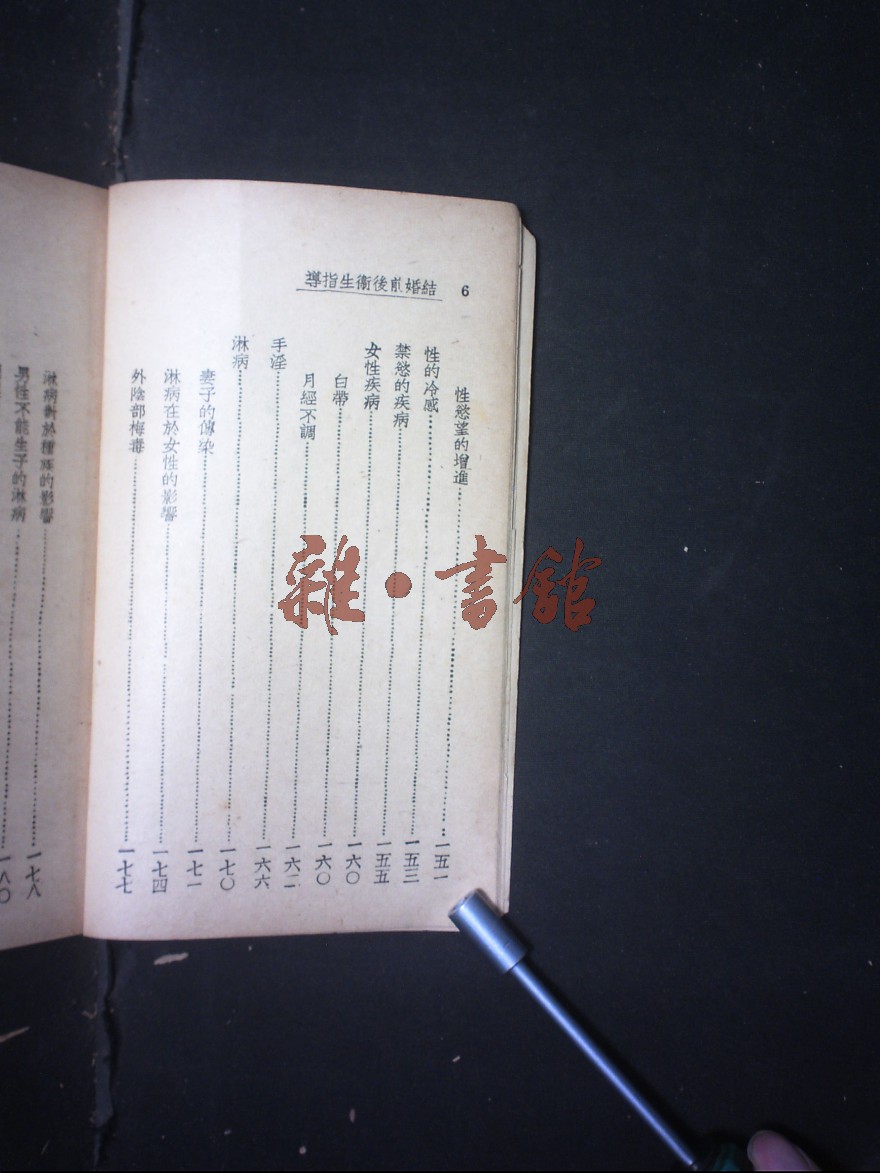 6
導指生衛後前婚結
性慾望的增進…………一五一
性的冷感…………一五三
禁慾的疾病…………一五五
女性疾病…………一六〇
白帶…………一六〇
月經不調…………一六二
手淫…………一六六
淋病…………一七〇
妻子的傳染…………一七一
淋病在於女性的影響…………一七四
外陰部梅毒…………一七七
淋病對於的影響…………一七八
男性不能生子的淋病…………一八〇
雜·書館